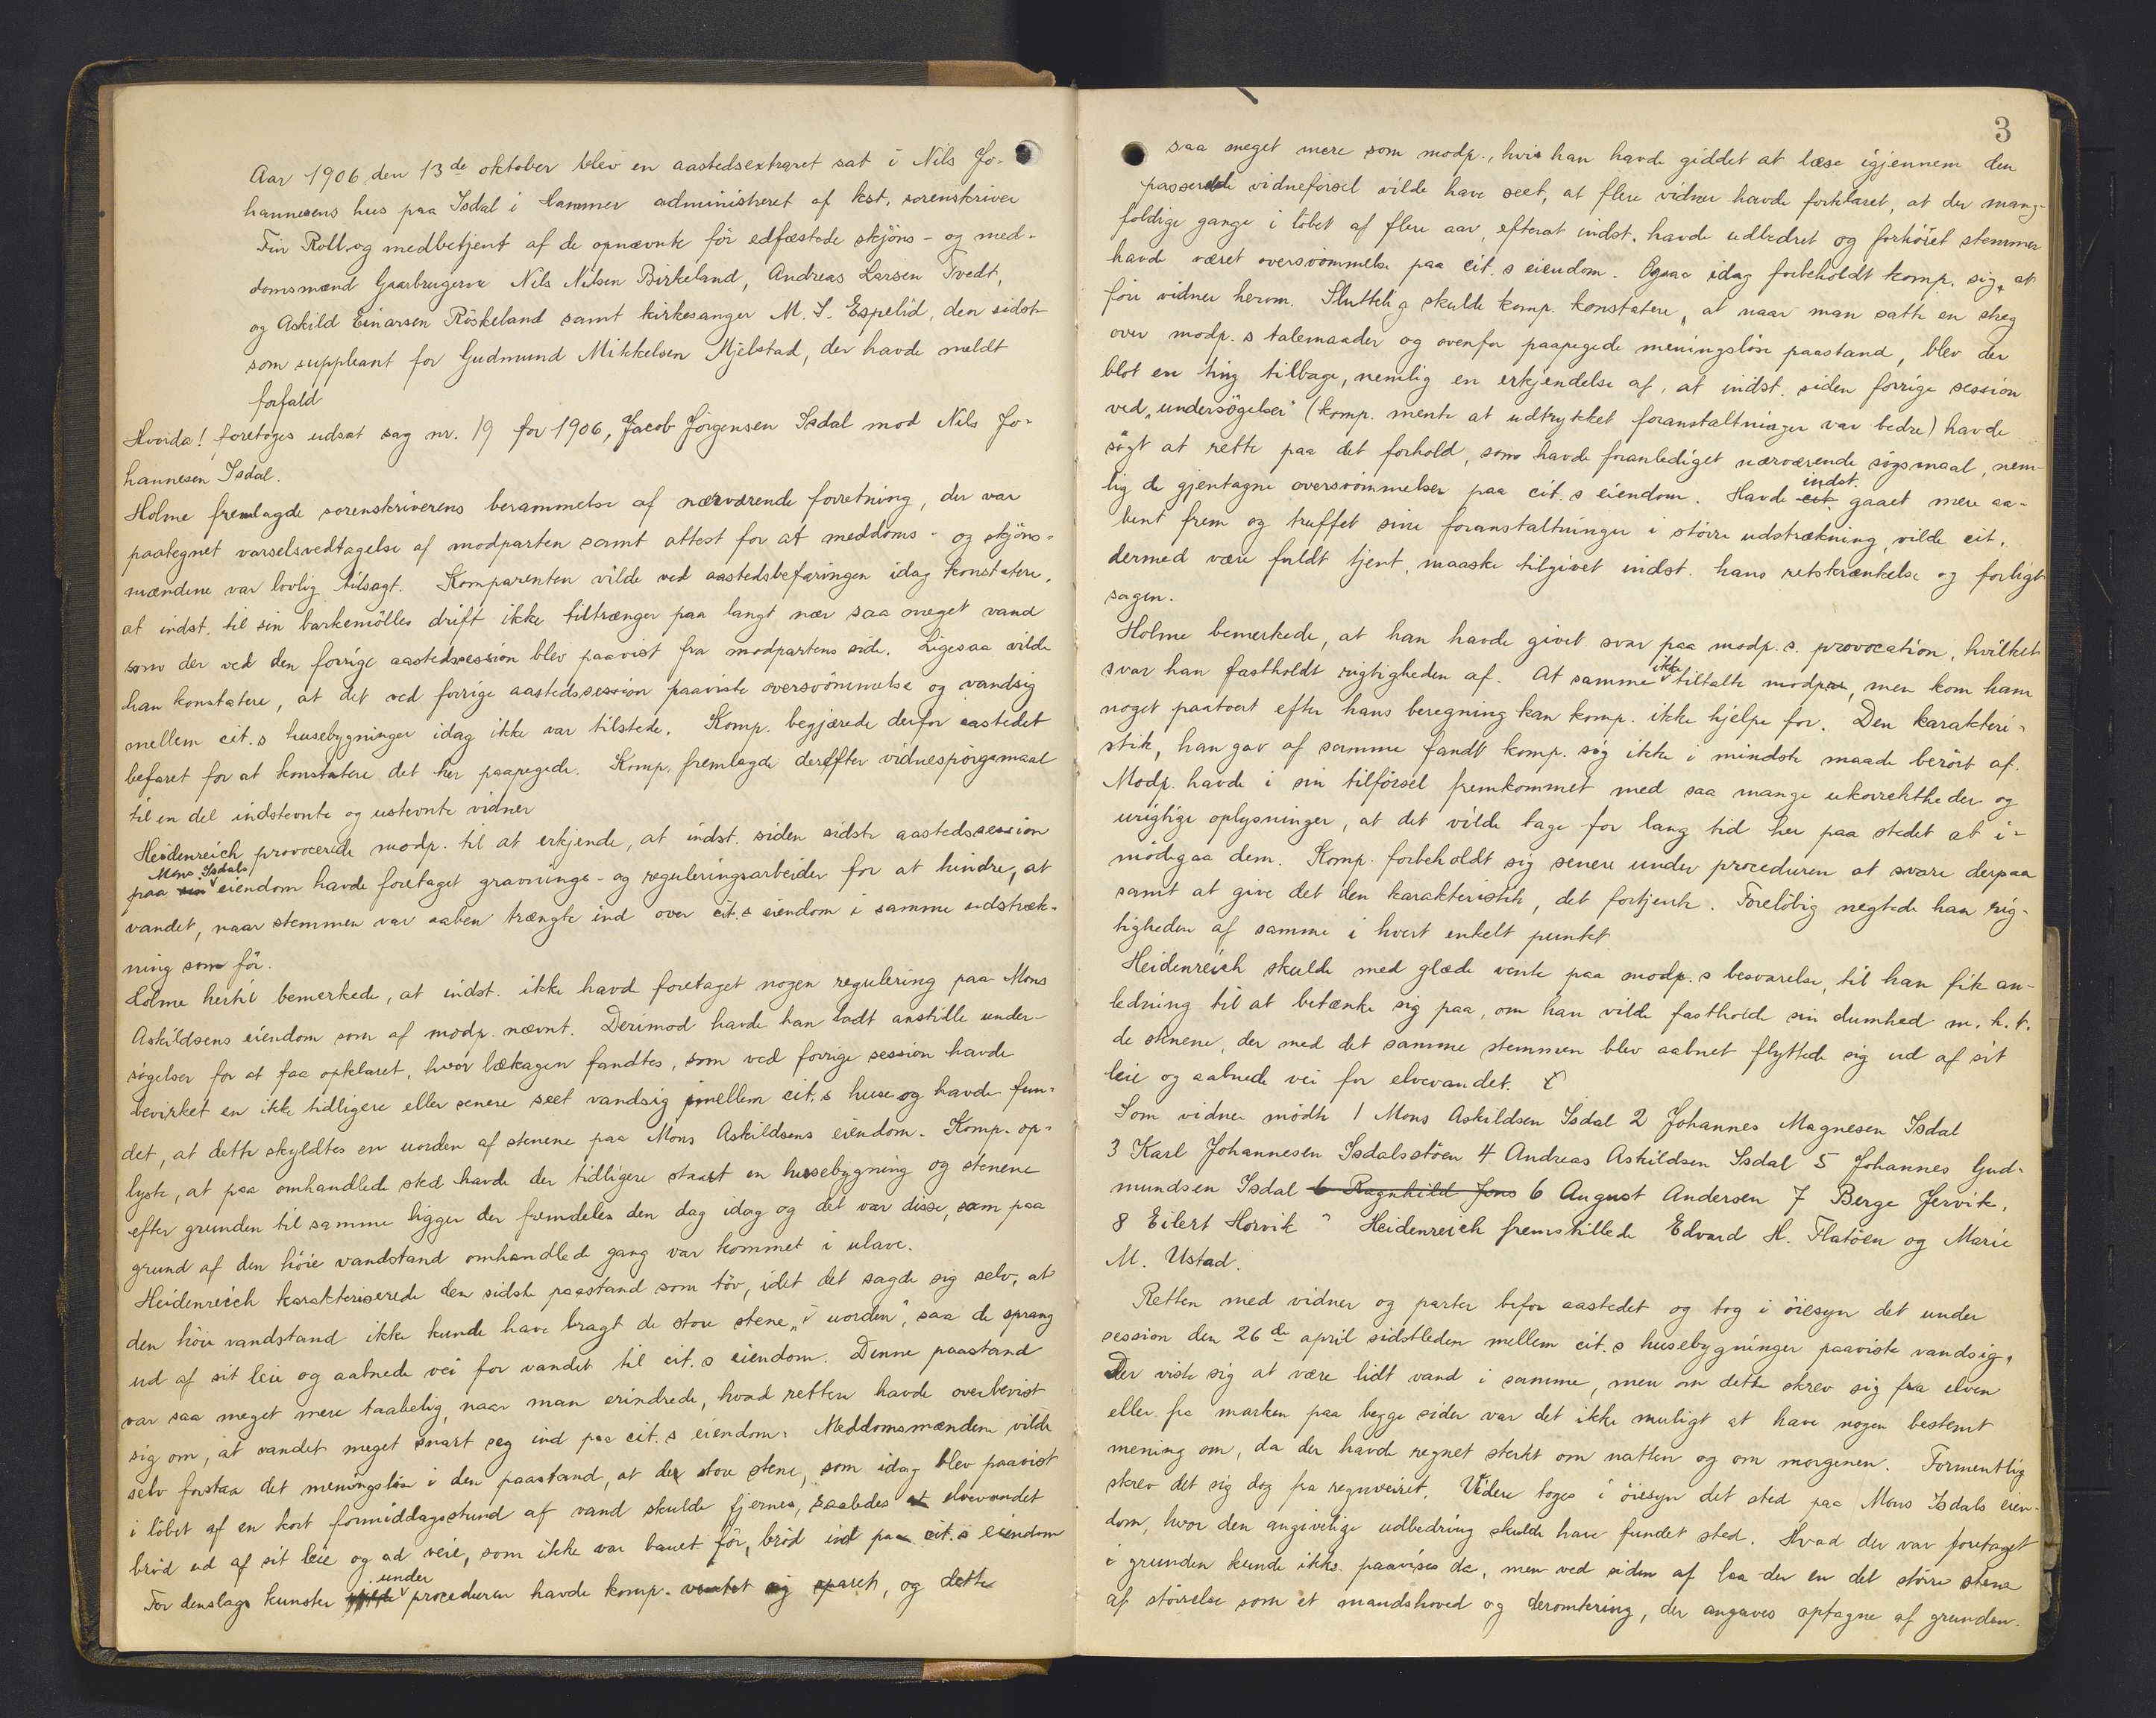 Aar 1906 den 13de oktober blev en aastedsextraret sat i Nils Jo-
hannesens hus paa Isdal i Hammer administreret af kst. sorenskriver
Fin Roll og medbetjent af de opnævnte før edfæstede skjöns- og med-
domsmænd Gaarbrugerne Nils Nilsen Birkeland, Andreas Larsen Tvedt,
og Askild Einarsen Röskeland samt kirkesanger M. S. Espelid, den sidste
som suppleant for Gudmund Mikkelsen Mjelstad, der havde meldt
forfald
Hvorda! foretoges udsat sag nr. 19 for 1906, Jacob Jörgensen Isdal mod Nils Jo-
hannesen Isdal.
Holme fremlagde sorenskriverens berammelse af nærværende forretning, der var
paategnet varselsvedtagelse af modparten samt attest for at meddoms- og skjöns-
mændene var lovlig tilsagt. Komparenten vilde ved aastedsbefaringen idag konstatere,
at indst. til sin barkemölles drift ikke tiltrænger paa langt nær saa meget vand
som der ved den forrige aastedssession blev paavist fra modpartens side. Ligesaa vilde
han konstatere, at det ved forrige aastedssession paaviste oversvömmelse og vandsig
mellem cit.s husebygninger idag ikke var tilstede. Komp. begjærede derfor aastedet
befaret for at konstatere det her paapegede. Komp. fremlagde derefter vidnespörgsmaal
til en del indstevnte og ustevnte vidner
Heidenreich provocerede modp. til at erkjende, at indst. siden sidste aastedssession
Mons Isdals
paa sin eiendom havde foretaget gravnings- og reguleringsarbeider for at hindre, at
vandet, naar stemmen var aaben trængte ind over cit.s eiendom i samme udstræk-
ning som för.
Holme hertil bemerkede, at indst. ikke havde foretaget nogen regulering paa Mons
Askildsens eiendom som af modp. nævnt. Derimod havde han ladt anstille under-
sögelser for at faa opklaret, hvor lækagen fandtes, som ved forrige session havde
bevirket en ikke tidligere eller senere seet vandsig imellem cit.s huse og havde fun-
det, at dette skyldtes en uorden af stenene paa Mons Askildsens eiendom. Komp. op-
lyste, at paa omhandlede sted havde der tidligere staaet en husebygning og stenene
efter grunden til samme ligger der fremdeles den dag idag og det var disse, som paa
grund af den höie vandstand omhandlede gang var kommet i ulave.
Heidenreich karakteriserede den sidste paastand som töv, idet det sagde sig selv, at
den höie vandstand ikke kunde have bragt de store stene „i uorden“, saa de sprang
ud af sit leie og aabnede vei for vandet til cit.s eiendom. Denne paastand
var saa meget mere taabelig, naar man erindrede, hvad retten havde overbevist
sig om, at vandet meget snart seg ind paa cit.s eiendom. Meddomsmændene vilde
selv forstaa det meningslöse i den paastand, at der store stene, som idag blev paavist
i löbet af en kort formiddagsstund af vand skulde fjernes, saaledes at elvevandet
bröd ud af sit leie og ad veie, som ikke var banet för, bröd ind paa cit.s eiendom
under
For denslags kunster proceduren havde komp. ventet sig sparet, og dette
3
saa meget mere som modp., hvis han havde giddet at læse igjennem den
passerede vidneförsel vilde have seet, at flere vidner havde forklaret, at der mang-
foldige gange i löbet af flere aar, efterat indst. havde udbedret og forhöiet stemmen
havde været oversvömmelse paa cit.s eiendom. Ogsaa idag forbeholdt komp. sig, at
före vidner herom. Sluttelig skulde komp. konstatere, at naar man satte en streg
over modp.s talemaader og ovenfor paapegede meningslöse paastand, blev der
blot en ting tilbage, nemlig en erkjendelse af, at indst. siden forrige session
ved „undersögelser“ (komp. mente at udtrykket foranstaltninger var bedre) havde
sögt at rette paa det forhold, som havde foranlediget nærværende sögsmaal, nem-
indst.
lig de gjentagne oversvömmelser paa cit.s eiendom. Havde cit. gaaet mere aa-
bent frem og truffet sine foranstaltninger i större udstrækning, vilde cit.
dermed være fuldt tjent, maaske tilgivet indst. hans retskrænkelse og forligt
sagen.
Holme bemerkede, at han havde givet svar paa modp.s. provocation, hvilket
ikke
svar han fastholdt rigtigheden af. At samme tiltalte modpar, men kom ham
noget paatvert efter hans beregning kan komp. ikke hjelpe for. Den karakteri-
stik, han gav af samme fandt komp. sig ikke i mindste maade berört af.
Modp. havde i sin tilförsel fremkommet med saa mange ukorrektheder og
urigtige oplysninger, at det vilde tage for lang tid her paa stedet at i-
mödegaa dem. Komp. forbeholdt sig senere under proceduren at svare derpaa
samt at give det den karakteristik, det fortjente. Forelöbig negtede han rig-
tigheden af samme i hvert enkelt punkt.
Heidenreich skulde med glæde vente paa modp.s besvarelse, til han fik an-
ledning til at betænke sig paa, om han vilde fastholde sin dumhed m. h. t.
de stenene, der med det samme stemmen blev aabnet flyttede sig ud af sit
leie og aabnede vei for elvevandet.
Som vidner mödte 1 Mons Askildsen Isdal 2 Johannes Magnesen Isdal
3 Karl Johannesen Isdalsstöen 4 Andreas Askildsen Isdal 5 Johannes Gud-
mundsen Isdal 6 Ragnhild Jons 6 August Andersen 7 Berge Jervik,
8 Eilert Horvik Heidenreich fremstillede Edvard H. Flatöen og Marie
M. Ustad.
Retten med vidner og parter befor aastedet og tog i öiesyn det under
session den 26de april sidstleden mellem cit.s husebygninger paaviste vandsig.
Der viste sig at være lidt vand i samme, men om dette skrev sig fra elven
eller fra marken paa begge sider var det ikke muligt at have nogen bestemt
mening om, da der havde regnet sterkt om natten og om morgenen. Formentlig
skrev det sig dog fra regnveiret. Videre toges i öiesyn det sted paa Mons Isdals eien-
dom, hvor den angivelige udbedring skulde have fundet sted. Hvad der var foretaget
i grunden kunde ikke paavises da, men ved siden af laa der en del större stene
af störrelse som et mandshoved og deromkring, der angaves optagne af grunden.